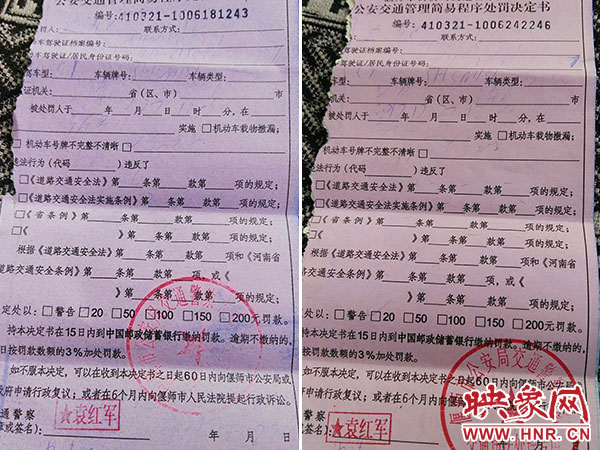 公安交通管理简易程序处罚决定书
编号:410321-1006181243
罚人:
联系方式:
车驾驶证档案编号:
驾驶证/居民身份证号码:
驾车型: 车辆牌号: 车辆类型:
证机关: 省(区、市) 市
被处罚人于 年 月 日 时 分,在
实施 □机动车载物撒漏;
□机动车号牌不完整不清晰 □
违法行为(代码 )违反了
□《道路交通安全法》第 条第 款第 项的规定;
□《道路交通安全法实施条例》第 条第 款第 项的规定;
□《省条例》第 条第 款第 项的规定;
□《 》第 条第 款第 项的规定;
根据《道路交通安全法》第 条第 款第 项和《河南省
道路交通安全条例》第 条第 款第 项或《
》第 条第 款第 项的规定;
定处以:□警告□20 □50 □100 □150 □200元罚款。
持本决定书在15日内到中国邮政储蓄银行缴纳。逾期不缴纳的,
日按罚款数额的3%加处罚款。
如不服本决定,可以在收到本决定书之日起60日内向偃师市公安局或
政府申请行政复议;或者在6个月内向偃师市人民法院提起行政诉讼。
通警察
章或签名): ★袁红军
年 月 日
公安交通管理简易程序处罚决定书
编号:410321-1006242246
罚人:
联系方式:
驾驶证档案编号:
驾驶证/居民身份证号码:
驾车型: 车辆牌号: 车辆类型:
机关: 省(区、市) 市
被处罚人于 年 月 日 时 分,在
实施 □机动车载物撒漏;
机动车号牌不完整不清晰 □
违法行为(代码 )违反了
□《道路交通安全法》第 条第 款第 项的规定;
□《道路交通安全法实施条例》第 条第 款第 项的规定;
□《省条例》第 条第 款第 项的规定;
□《 》第 条第 款第 项的规定;
根据《道路交通安全法》第 条第 款第 项和《河南省
道路交通安全条例》第 条第 款第 项,或《
》第 条第 款第 项的规定;
定处以:□警告□20 □50 □100 □150 □200元罚款。
持本决定书在15日内到中国邮政储蓄银行缴纳。逾期不缴纳的,
日按罚款数额的3%加处罚款。
如不服本决定,可以在收到本决定书之日起60日内向偃师市公安局或
府申请行政复议;或者在6个月内向偃师市人民法院提起行政诉讼。
通警察
或签名): ★袁红军
公安局交通警
映象网
www.HNR.CN